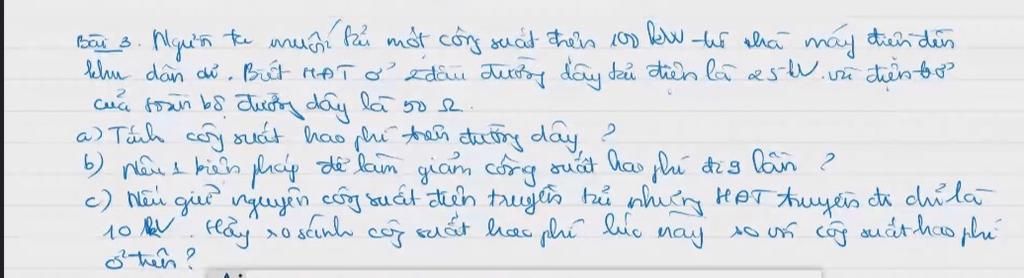 Bài 3. Người ta muốn tải một công suất điện 100 kW từ nhà máy điện đến
khu dân cư. Biết HĐT ở 2 đầu đường dây tải điện là 25 kV với điện trở
của toàn bộ đường dây là 50 Ω.
a) Tính công suất hao phí trên đường dây ?
b) Nêu 1 biện pháp để làm giảm công suất hao phí đi 9 lần ?
c) Nếu giữ nguyên công suất điện truyền tải nhưng HĐT truyền đi chỉ là
10 kV. Hãy so sánh công suất hao phí lúc này so với công suất hao phí
ở trên ?